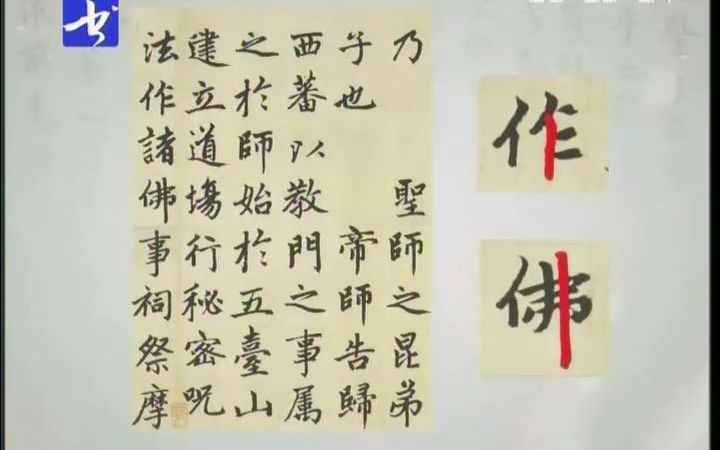 书
乃 聖師之昆弟
子也 帝師告歸
西蕃以教門之事属
之於師始於五臺山
建立道場行秘密呪
法作諸佛事祠祭摩
作
佛